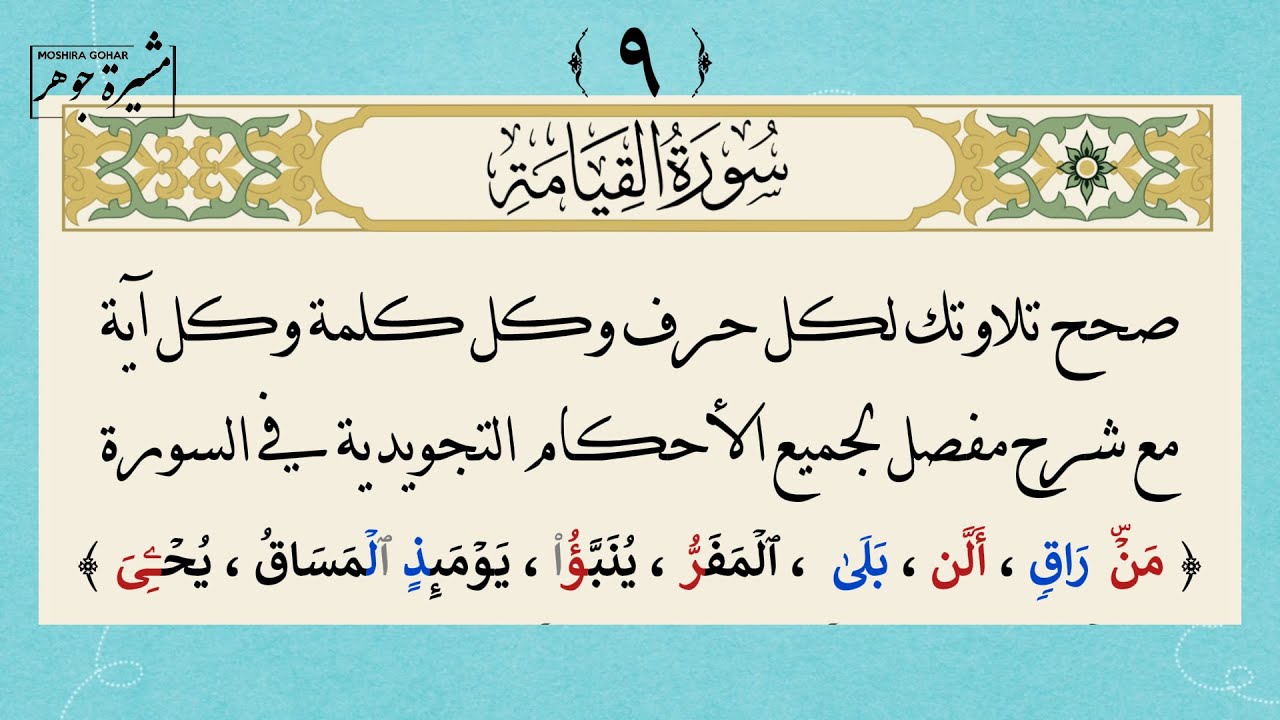 MOSHIRA GOHAR
مشيرة جوهر
﴿ ٩ ﴾
سُورَةُ القِيَامَةِ
صحح تلاوتك لكل حرف وكل كلمة وكل آية
مع شرح مفصل لجميع الأحكام التجويدية في السورة
﴿ مَنْۜ رَاقٍ ، أَلَّن ، بَلَىٰ ، ٱلْمَفَرُّ ، يُنَبَّؤُا۟ ، يَوْمَئِذٍ ٱلْمَسَاقُ ، يُحْـِۧىَ ﴾